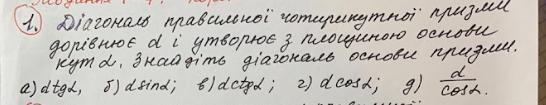 1. Діагональ правильної чотирикутної призми
дорівнює d і утворює з площиною основи
кут α. Знайдіть діагональ основи призми.
а) d tgα, б) d sinα; в) d ctgα; г) d cosα; д) d/cosα.